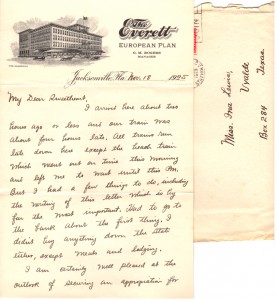 The
Everett
EUROPEAN PLAN
MANAGER
Jacksonville, Fla. Nov. 18 1925
My Dear Sweetheart,
I arrived here about two
hours ago or less and our train was
about four hours late. All trains run
late down here except the trains
which went out on time this morning
and left me to wait until this P.M.
But I had a few things to do, including
the writing of this letter which is by
far the most important. Had to go to
the bank about the first thing. I
didn't buy anything down the state
either, except meals and lodging.
I am certainly well pleased at the
outlook of securing an appropriation for
Miss Inee
Uvalde
Box 284 Texas.